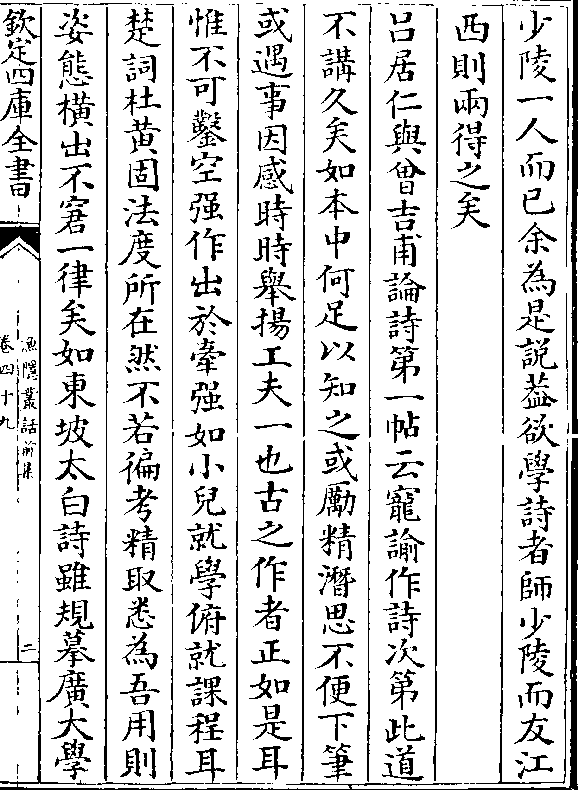 少陵一人而已余為是說葢欲學詩者師少陵而友江
西則兩得之矣
吕居仁與曾吉甫論詩第一帖云寵諭作詩次第此道
不講久矣如本中何足以知之或勵精潛思不便下筆
或遇事因感時時舉揚工夫一也古之作者正如是耳
惟不可鑿空强作出於牽强如小兒就學俯就課程耳
楚詞杜黄固法度所在然不若徧考精取悉為吾用則
姿態横出不窘一律矣如東坡太白詩雖規摹廣大學
欽定四庫全書
漁隱叢話前集
卷四十九
二